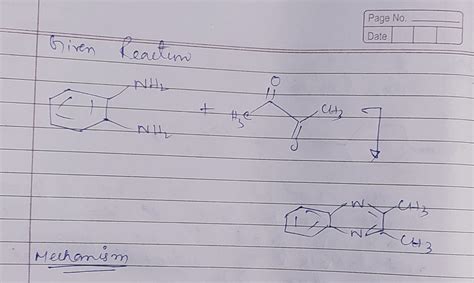 Page No.
Date
Given Reaction
NH₂
O
+
H₃C
CH₃
NH₂
O
N
CH₃
N
CH₃
Mechanism